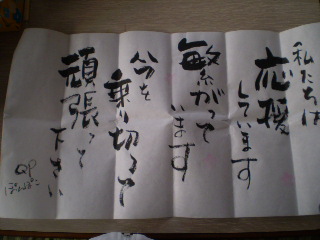 私たちは
応援
しています
繋がって
います
今を
乗り切って
頑張って
下さい
QP
ぽんぽこ